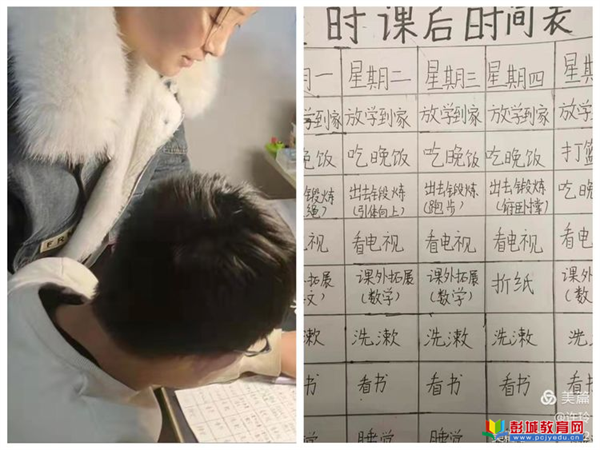 时课后时间表
一 星期二 星期三 星期四 星
学到家 放学到家 放学到家 放学到家 放学
饭 吃晚饭 吃晚饭 吃晚饭 打篮
锻炼 出去锻炼 出去锻炼 出去锻炼 吃晚
绳) (引体向上) (跑步) 卧撑)
电视 看电视 看电视 看电视 看电
拓展 课外拓展 课外拓展 折纸 课外
文) (数学) (数学) (数
漱 洗漱 洗漱 洗漱 洗
看书 看书 看书 看书 看
睡觉
美篇
@许玲
彭城教育网
www.pcjyedu.cn